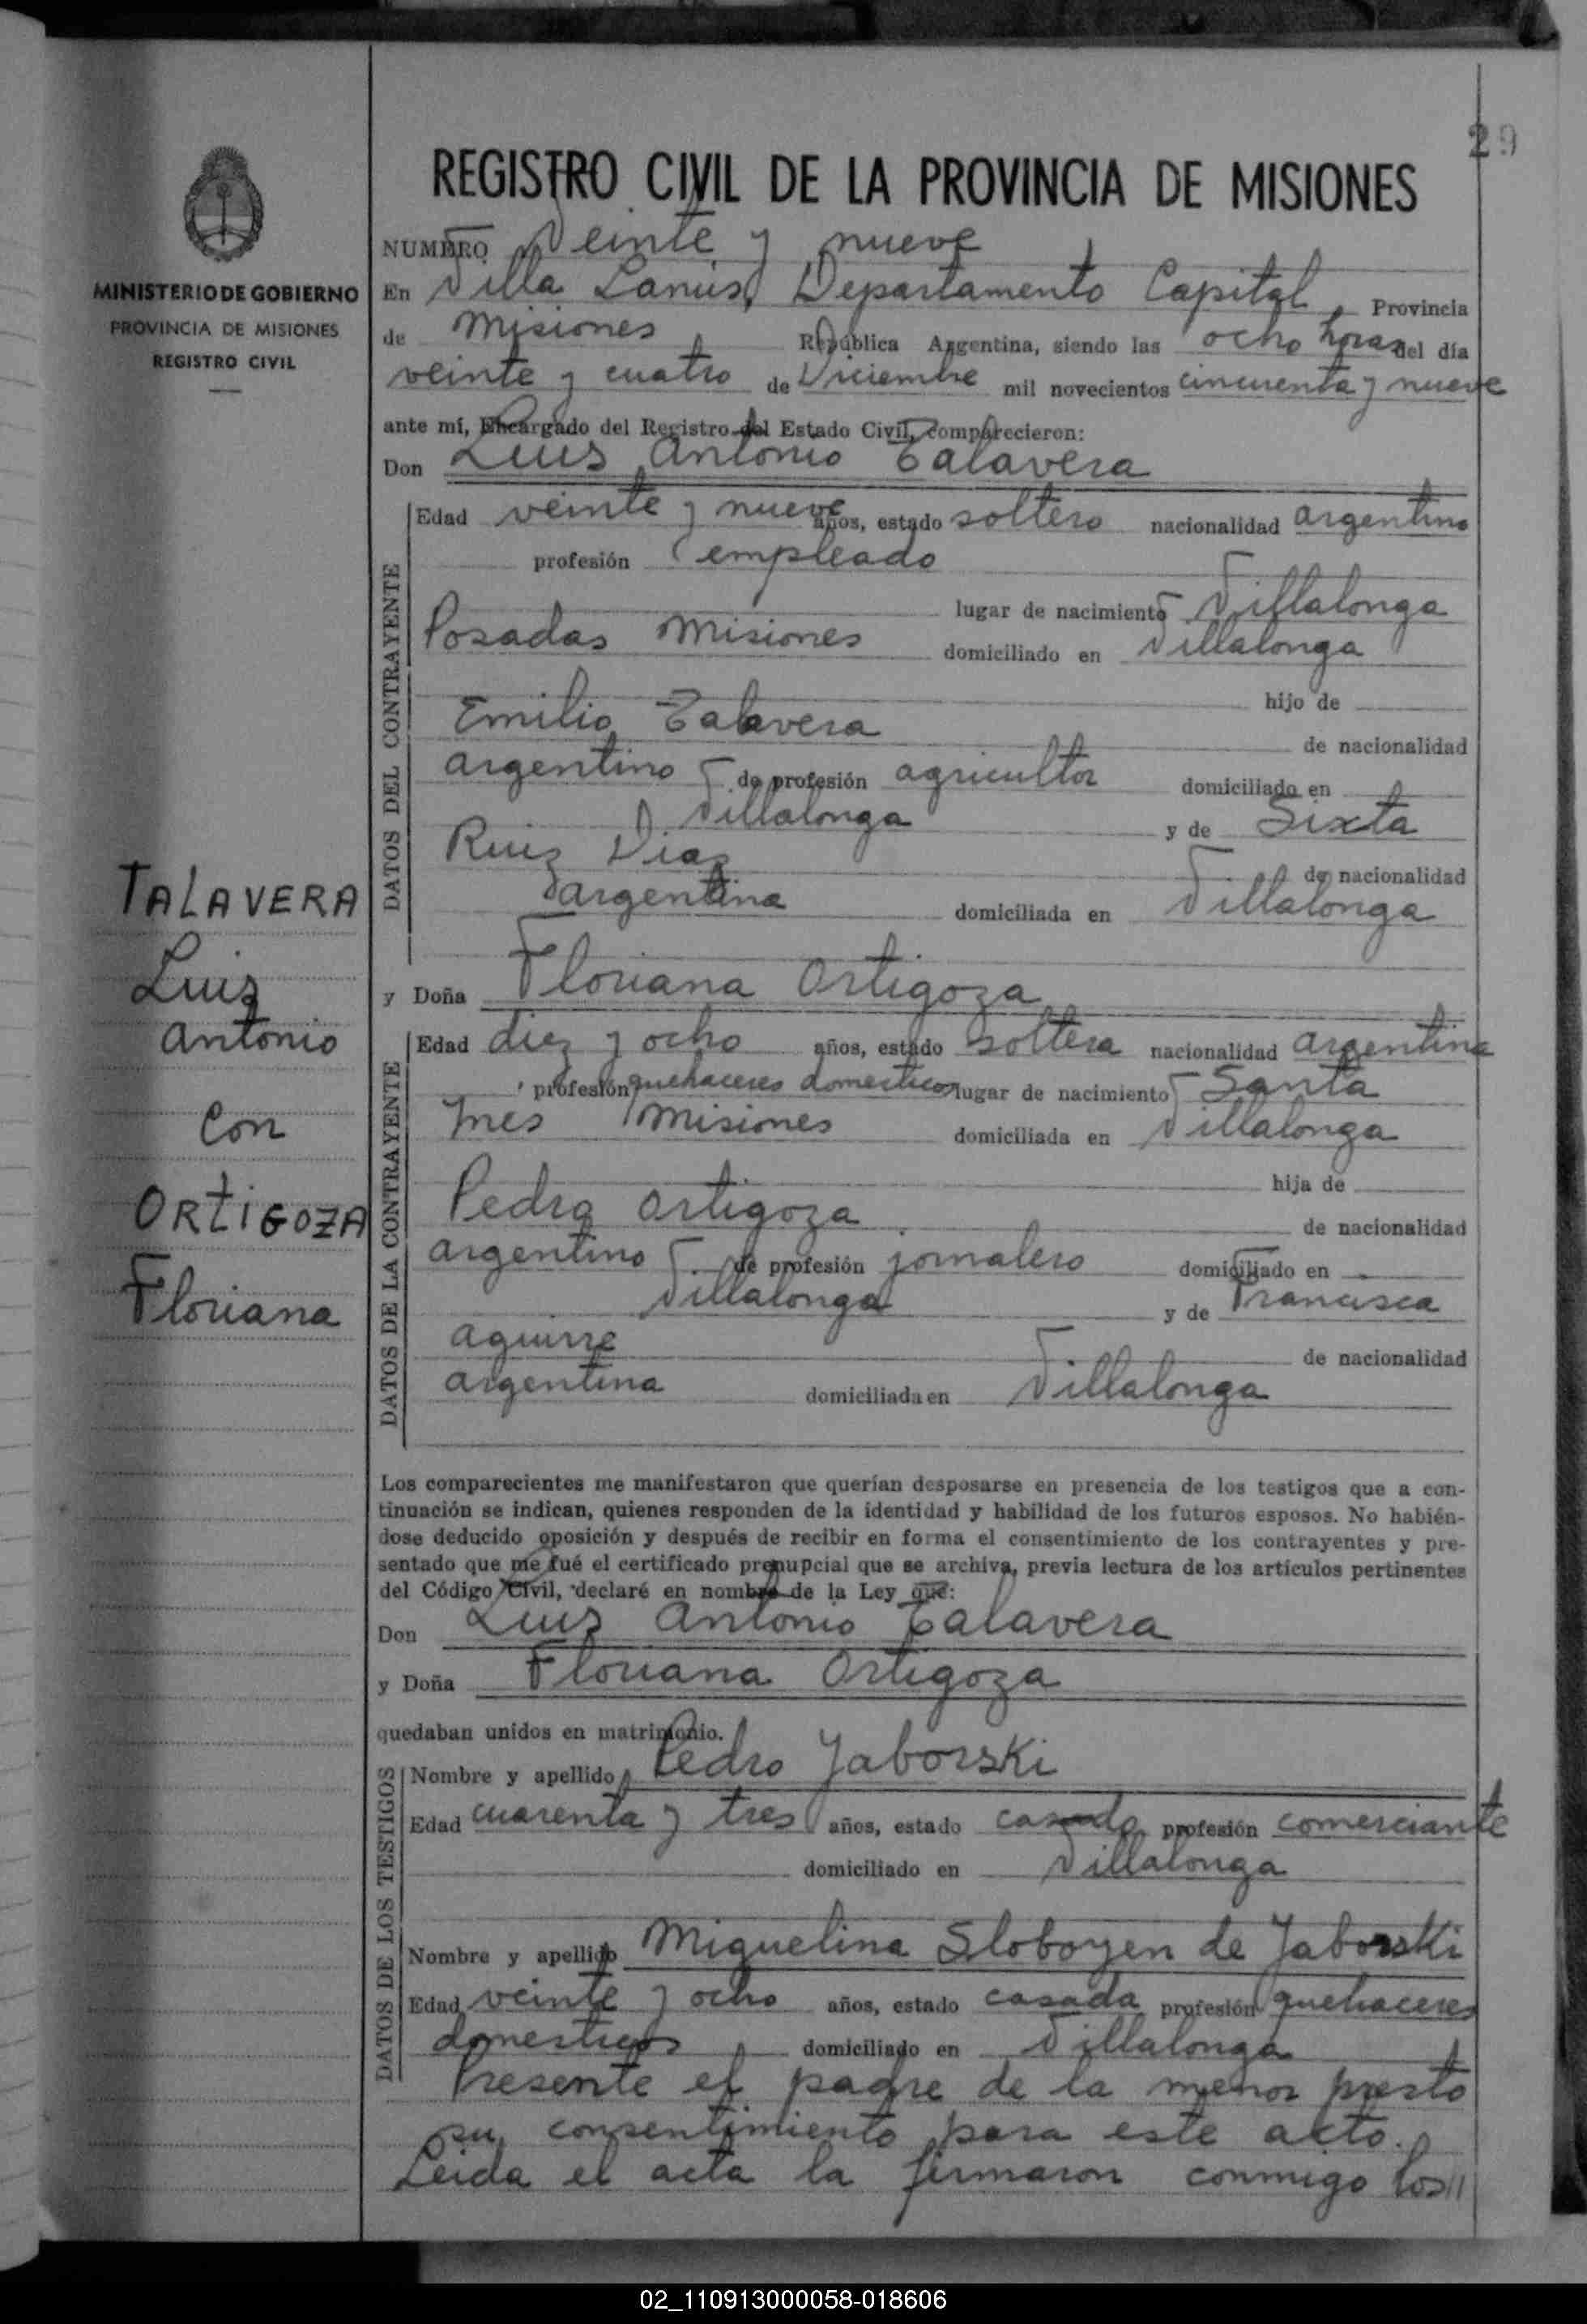 29
MINISTERIO DE GOBIERNO
PROVINCIA DE MISIONES
REGISTRO CIVIL
TALAVERA
Luis
Antonio
Con
ORTIGOZA
Floriana
REGISTRO CIVIL DE LA PROVINCIA DE MISIONES
NUMERO Veinte y nueve
En Villa Lanús, Departamento Capital, Provincia
de Misiones República Argentina, siendo las ocho horas del día
veinte y cuatro de Diciembre mil novecientos cincuenta y nueve
ante mí, Encargado del Registro del Estado Civil, comparecieron:
Don Luis Antonio Talavera
DATOS DEL CONTRAYENTE
Edad veinte y nueve años, estado soltero nacionalidad argentino
profesión empleado
lugar de nacimiento Villalonga
Posadas Misiones domiciliado en Villalonga
hijo de
Emilio Talavera de nacionalidad
argentino de profesión agricultor domiciliado en
Villalonga y de Sixta
Ruiz Diaz de nacionalidad
argentina domiciliada en Villalonga
y Doña Floriana Ortigoza
DATOS DE LA CONTRAYENTE
Edad diez y ocho años, estado soltera nacionalidad argentina
profesión quehaceres domesticos lugar de nacimiento Santa
Ines Misiones domiciliada en Villalonga
hija de
Pedro Ortigoza de nacionalidad
argentino de profesión jornalero domiciliado en
Villalonga y de Francisca
Aguirre de nacionalidad
argentina domiciliada en Villalonga
Los comparecientes me manifestaron que querían desposarse en presencia de los testigos que a con-
tinuación se indican, quienes responden de la identidad y habilidad de los futuros esposos. No habién-
dose deducido oposición y después de recibir en forma el consentimiento de los contrayentes y pre-
sentado que me fué el certificado prenupcial que se archiva, previa lectura de los artículos pertinentes
del Código Civil, declaré en nombre de la Ley que:
Don Luis Antonio Talavera
y Doña Floriana Ortigoza
quedaban unidos en matrimonio.
DATOS DE LOS TESTIGOS
Nombre y apellido Pedro Jaborski
Edad cuarenta y tres años, estado casado profesión comerciante
domiciliado en Villalonga
Nombre y apellido Miguelina Sloboyen de Jaborski
Edad veinte y ocho años, estado casada profesión quehaceres
domesticos domiciliado en Villalonga
Presente el padre de la menor presto
su consentimiento para este acto.
Leida el acta la firmaron conmigo los//
02_110913000058-018606